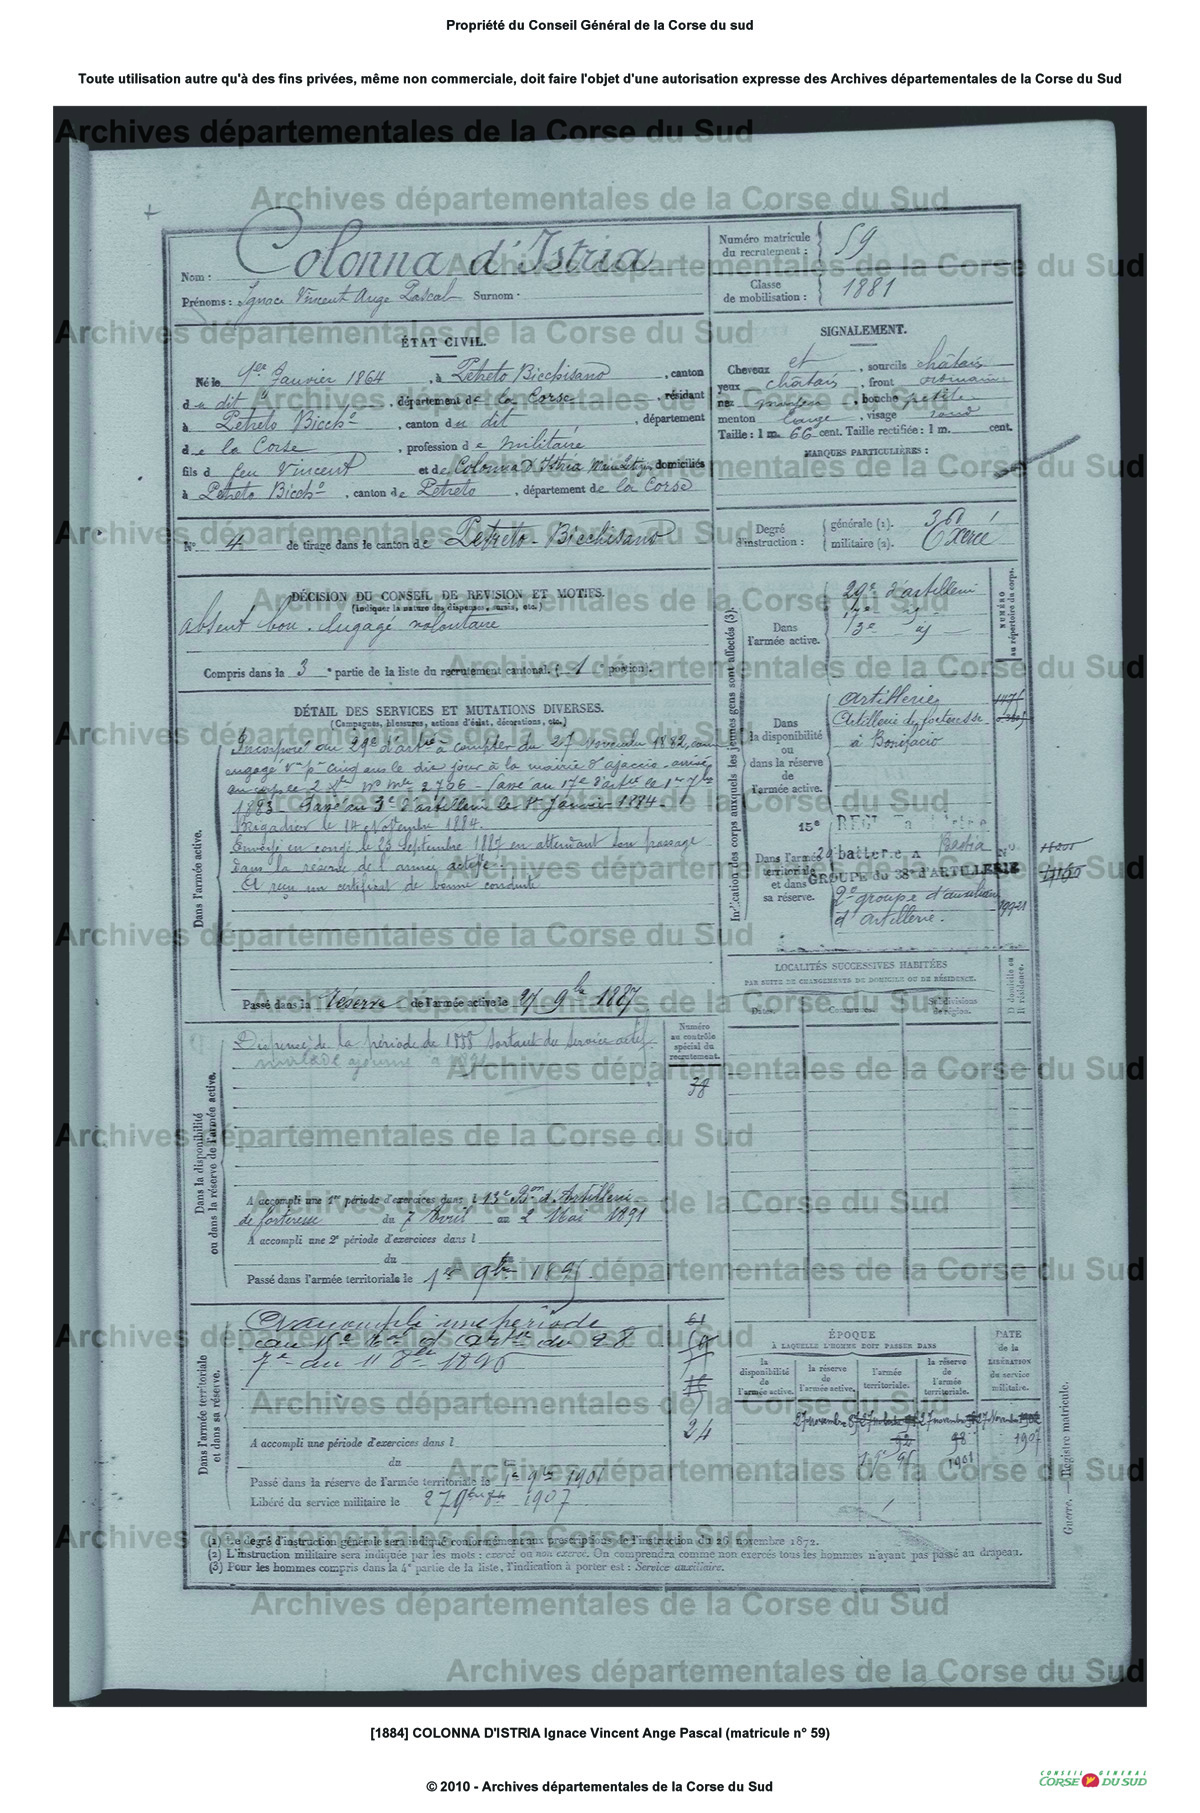 Propriété du Conseil Général de la Corse du sud
Toute utilisation autre qu'à des fins privées, même non commerciale, doit faire l'objet d'une autorisation expresse des Archives départementales de la Corse du Sud
Archives départementales de la Corse du Sud
Nom : Colonna d'Istria
Prénoms : Ignace Vincent Ange Pascal Surnom :
Numéro matricule du recrutement : 59
Classe de mobilisation : 1881
ÉTAT CIVIL.
Né le 1er Janvier 1864, à Petreto Bicchisano, canton
du dit, département de la Corse, résidant
à Petreto Bicchno, canton du dit, département
de la Corse, profession de militaire
fils d feu Vincent et de Colonna d'Istria domiciliés
à Petreto Bicchno, canton de Petreto, département de la Corse
SIGNALEMENT.
Cheveux et, sourcils châtais
yeux châtais, front ordinaire
nez, bouche petite
menton large, visage rond
Taille : 1 m. 66 cent. Taille rectifiée : 1 m. cent.
MARQUES PARTICULIÈRES :
N° 4 de tirage dans le canton de Petreto-Bicchisano
Degré d'instruction :
générale (1).
militaire (2). Exercé
DÉCISION DU CONSEIL DE REVISION ET MOTIFS.
(Indiquer la nature des dispenses, sursis, etc.)
absent bon. Engagé volontaire
Compris dans la 3e partie de la liste du recrutement cantonal. (1e portion).
DÉTAIL DES SERVICES ET MUTATIONS DIVERSES.
(Campagnes, blessures, actions d'éclat, décorations, etc.)
Dans l'armée active.
Incorporé au 29e d'artie à compter du 27 novembre 1882, comme
engagé vre pr cinq ans le dix jour à la mairie d'ajaccio. arrivé
au corps le 2 Xbre No Mle 2706 - Passé au 17e d'artie le 1er 7bre
1883 Passé au 13e d'artillerie le 1er Janvier 1884.
Brigadier le 14 Novembre 1884.
Envoyé en congé le 23 Septembre 1887 en attendant son passage
dans la réserve de l'armée active.
Et reçu un certificat de bonne conduite
Passé dans la réserve de l'armée active le 27 9bre 1887
Indication des corps auxquels les jeunes gens sont affectés (3).
NUMÉRO au répertoire du corps.
Dans l'armée active.
29e d'artillerie
17e
13e
Dans la disponibilité ou dans la réserve de l'armée active.
Artillerie
Artillerie de forteresse
à Bonifacio
Dans l'armée territoriale et dans sa réserve.
15e
batterie à Bastia
GROUPE du 38e d'ARTILLERIE
2e groupe d'auxiliaires
d'artillerie.
LOCALITÉS SUCCESSIVES HABITÉES
PAR SUITE DE CHANGEMENTS DE DOMICILE OU DE RÉSIDENCE.
Dates.
Communes.
Subdivisions de région.
D. domicile ou R. résidence.
Dans la disponibilité ou dans la réserve de l'armée active.
Dispensé de la période de 1888 Sortant du service actif
malade ajourné à 1891
Numéro au contrôle spécial du recrutement.
38
A accompli une 1re période d'exercices dans l 13e Bon d'Artillerie
de forteresse du 7 Avril au 2 Mai 1891
A accompli une 2e période d'exercices dans l
du
Passé dans l'armée territoriale le 1er 9bre 1895
Dans l'armée territoriale et dans sa réserve.
A accompli une période
au 15e Bon d'Artie du 28
7bre au 11 8bre 1896
24
A accompli une période d'exercices dans l
du
Passé dans la réserve de l'armée territoriale le 1er 9bre 1901
Libéré du service militaire le 27 9bre 1907
ÉPOQUE
À LAQUELLE L'HOMME DOIT PASSER DANS
la disponibilité de l'armée active.
la réserve de l'armée active.
l'armée territoriale.
la réserve de l'armée territoriale.
DATE de la LIBÉRATION du service militaire.
27 novembre 87
1901
1907
Guerre. — Registre matricule.
(1) Le degré d'instruction générale sera indiqué conformément aux prescriptions de l'instruction du 26 novembre 1872.
(2) L'instruction militaire sera indiquée par les mots : exercé ou non exercé. On comprendra comme non exercés tous les hommes n'ayant pas passé au drapeau.
(3) Pour les hommes compris dans la 4e partie de la liste, l'indication à porter est : Service auxiliaire.
[1884] COLONNA D'ISTRIA Ignace Vincent Ange Pascal (matricule n° 59)
© 2010 - Archives départementales de la Corse du Sud
CONSEIL GÉNÉRAL
CORSE DU SUD